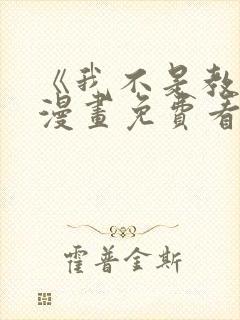 《我不是教
漫畫免費看
霍普金斯